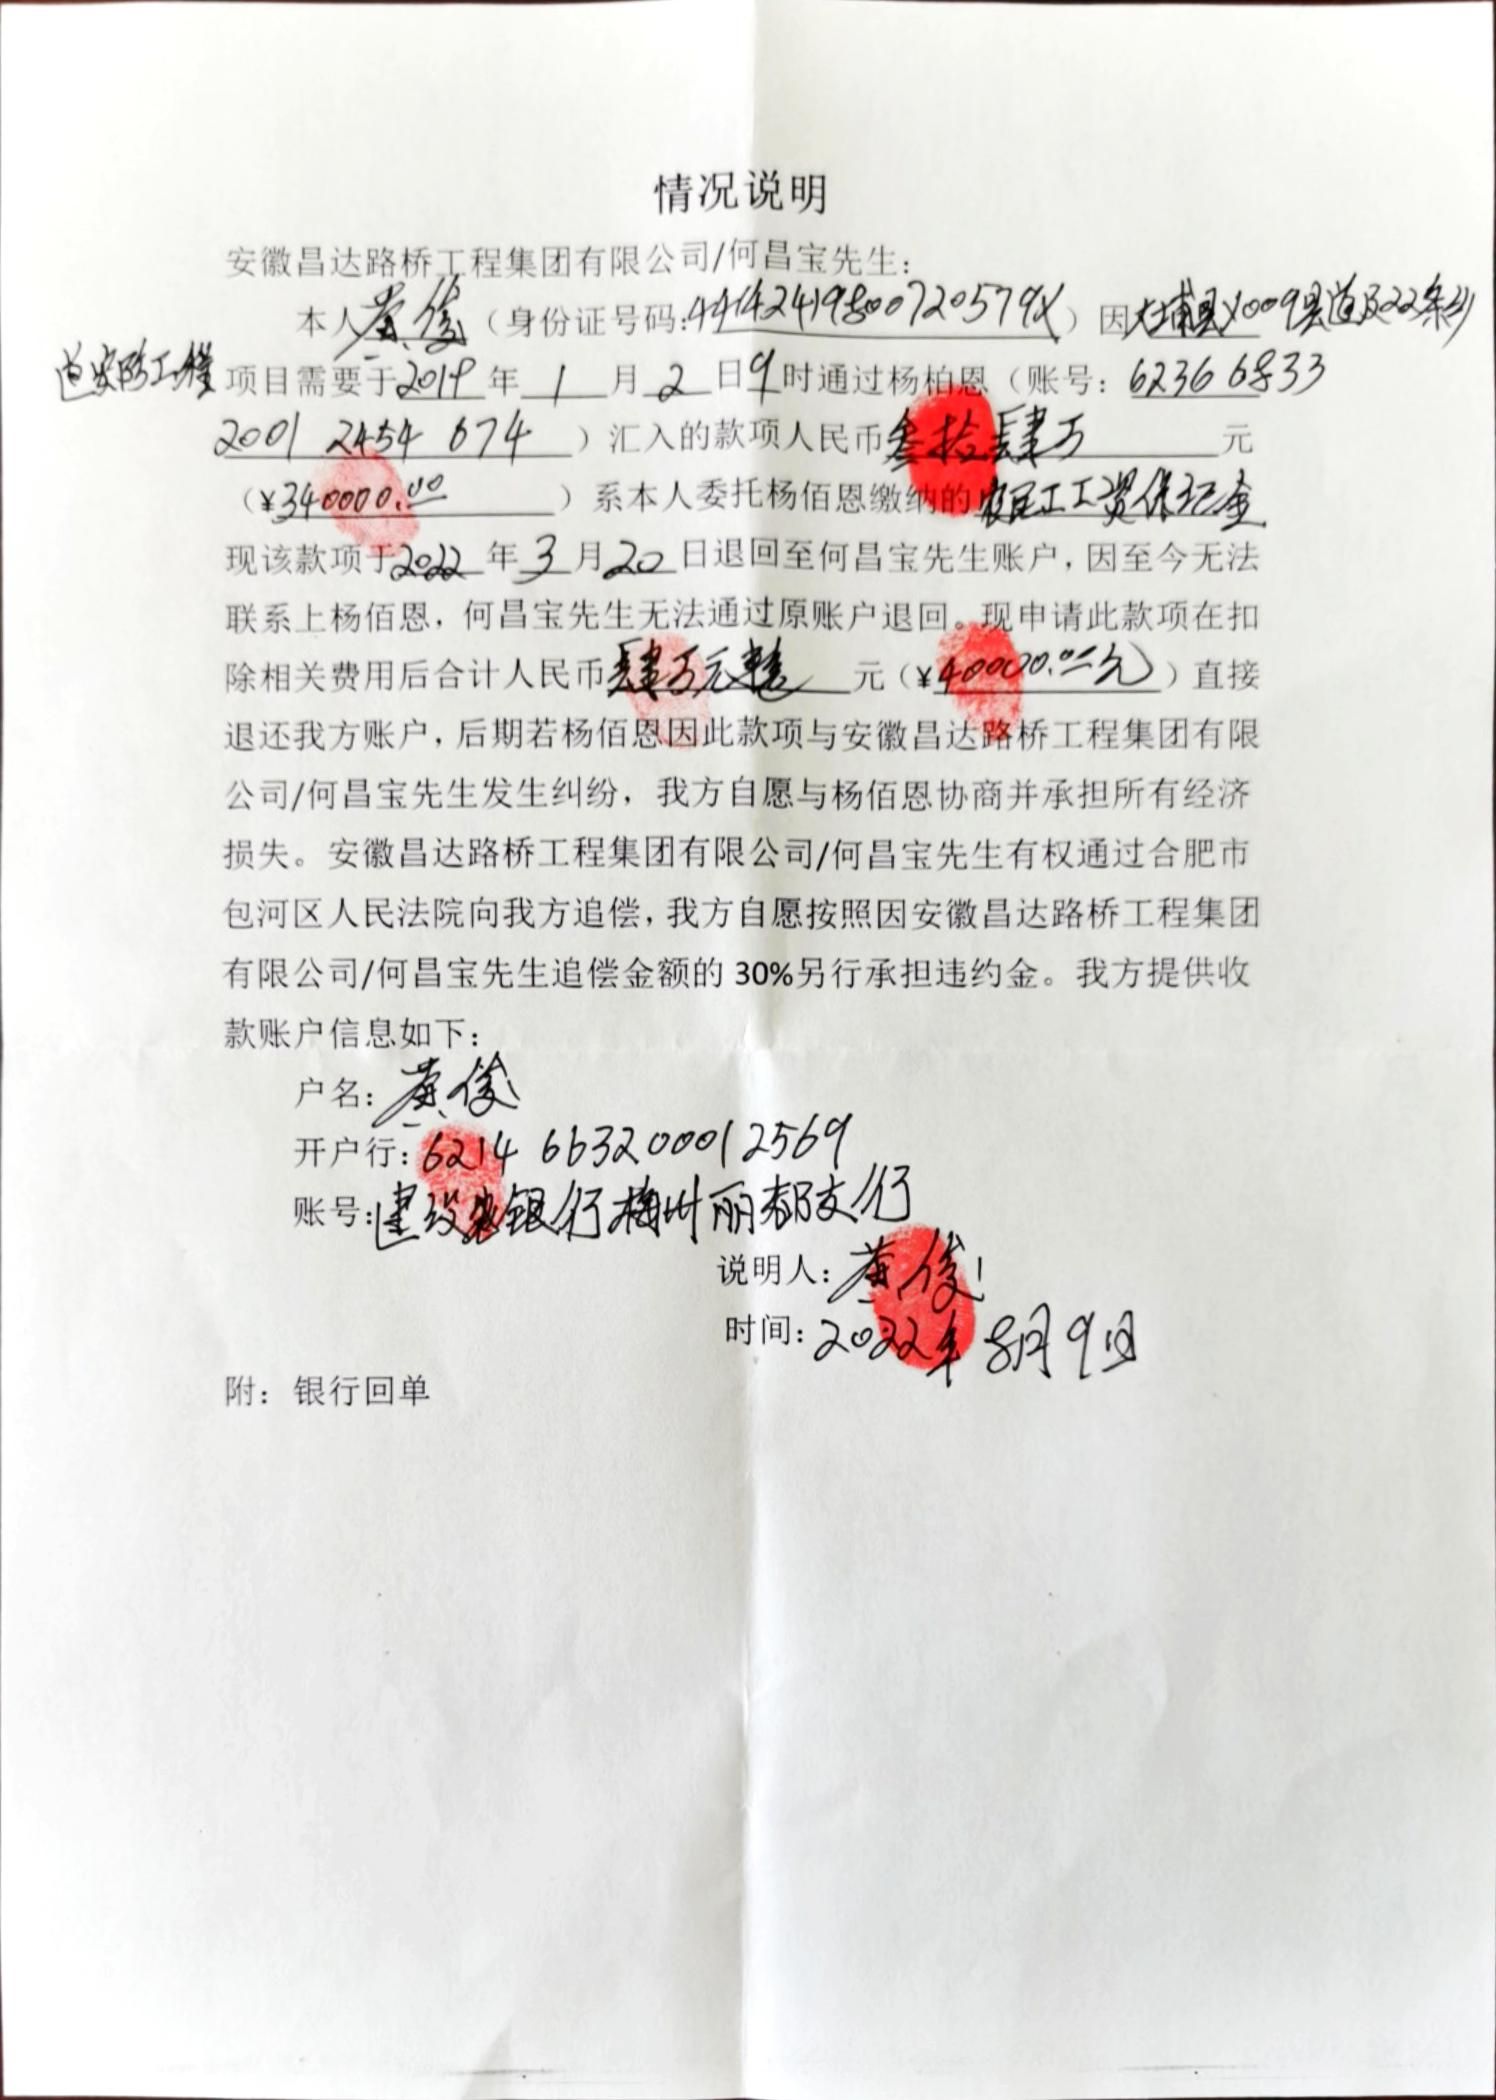 情况说明
安徽昌达路桥工程集团有限公司/何昌宝先生：
本人黄俊（身份证号码:44142419800720579X）因大埔县X009县道及22条乡
道安防工程项目需要于2019年1月2日9时通过杨柏恩（账号：6236 6833
2001 2454 674）汇入的款项人民币叁拾肆万元
（¥340000.00）系本人委托杨佰恩缴纳的农民工工资保证金
现该款项于2022年3月20日退回至何昌宝先生账户，因至今无法
联系上杨佰恩，何昌宝先生无法通过原账户退回。现申请此款项在扣
除相关费用后合计人民币肆万元整元（¥40000.00元）直接
退还我方账户，后期若杨佰恩因此款项与安徽昌达路桥工程集团有限
公司/何昌宝先生发生纠纷，我方自愿与杨佰恩协商并承担所有经济
损失。安徽昌达路桥工程集团有限公司/何昌宝先生有权通过合肥市
包河区人民法院向我方追偿，我方自愿按照因安徽昌达路桥工程集团
有限公司/何昌宝先生追偿金额的30%另行承担违约金。我方提供收
款账户信息如下：
户名：黄俊
开户行：6214 663200012569
账号：建设银行梅州丽都支行
说明人：黄俊
时间：2022年8月9日
附：银行回单